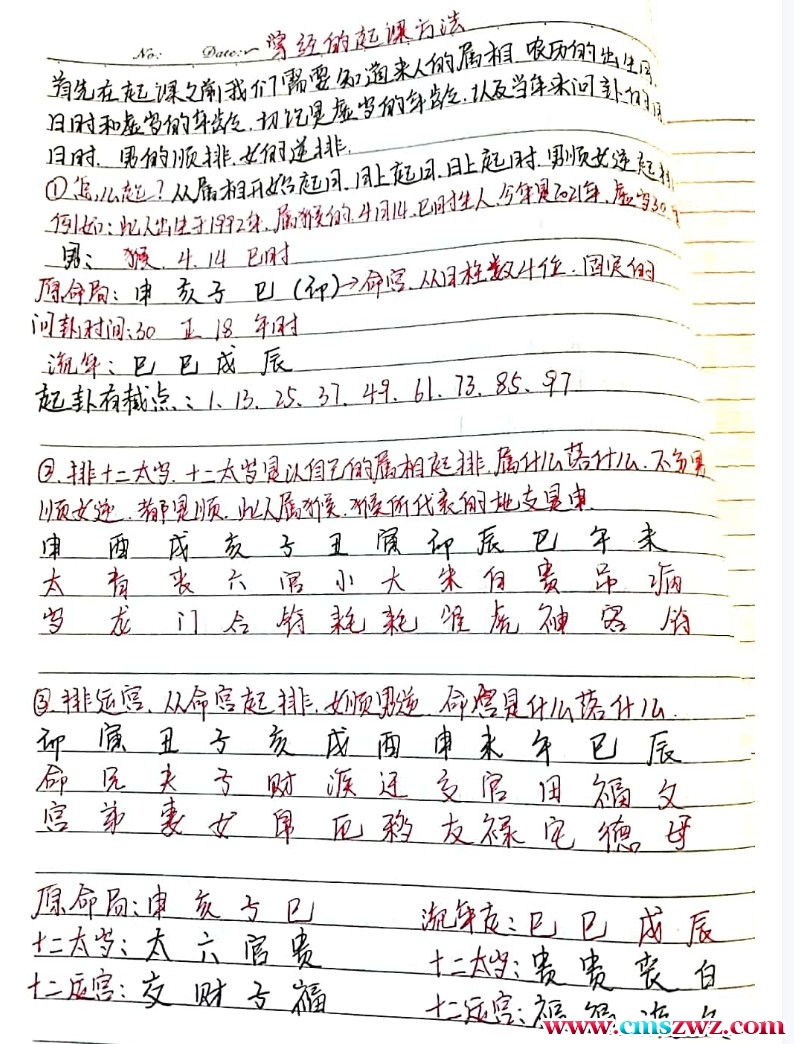 No: Date: 掌经的起课方法
首先在起课之前我们需要知道来人的属相.农历的出生月
日时和虚岁的年龄.切记是虚岁的年龄.以及当年来问卦的月
日时.男的顺排.女的逆排.
①怎么起?从属相开始起月.月上起日.日上起时.男顺女逆起排
例如:此人出生于1992年.属猴的.4月14.巳时生人.今年是2021年.虚岁30
男: 猴.4.14 巳时
原命局: 申 亥 子 巳 (卯)→命宫.从日柱数4位.固定的
问卦时间:30 正 18 午时
流年: 巳 巳 戌 辰
起卦有截点: 1.13.25.37.49.61.73.85.97
②排十二太岁.十二太岁是以自己的属相起排.属什么落什么.不分男
顺女逆.都是顺.此人属猴.猴所代表的地支是申.
申 酉 戌 亥 子 丑 寅 卯 辰 巳 午 未
太 青 丧 六 官 小 大 朱 白 贵 吊 病
岁 龙 门 合 符 耗 耗 雀 虎 神 客 符
③排运宫.从命宫起排.女顺男逆 命宫是什么落什么.
卯 寅 丑 子 亥 戌 酉 申 未 午 巳 辰
命 兄 夫 子 财 疾 迁 交 官 田 福 父
宫 弟 妻 女 帛 厄 移 友 禄 宅 德 母
原命局:申 亥 子 巳 流年友:巳 巳 戌 辰
十二太岁: 太 六 官 贵 十二太岁: 贵 贵 丧 白
十二运宫: 交 财 子 福 十二运宫: 福 福
www.cmszwz.com